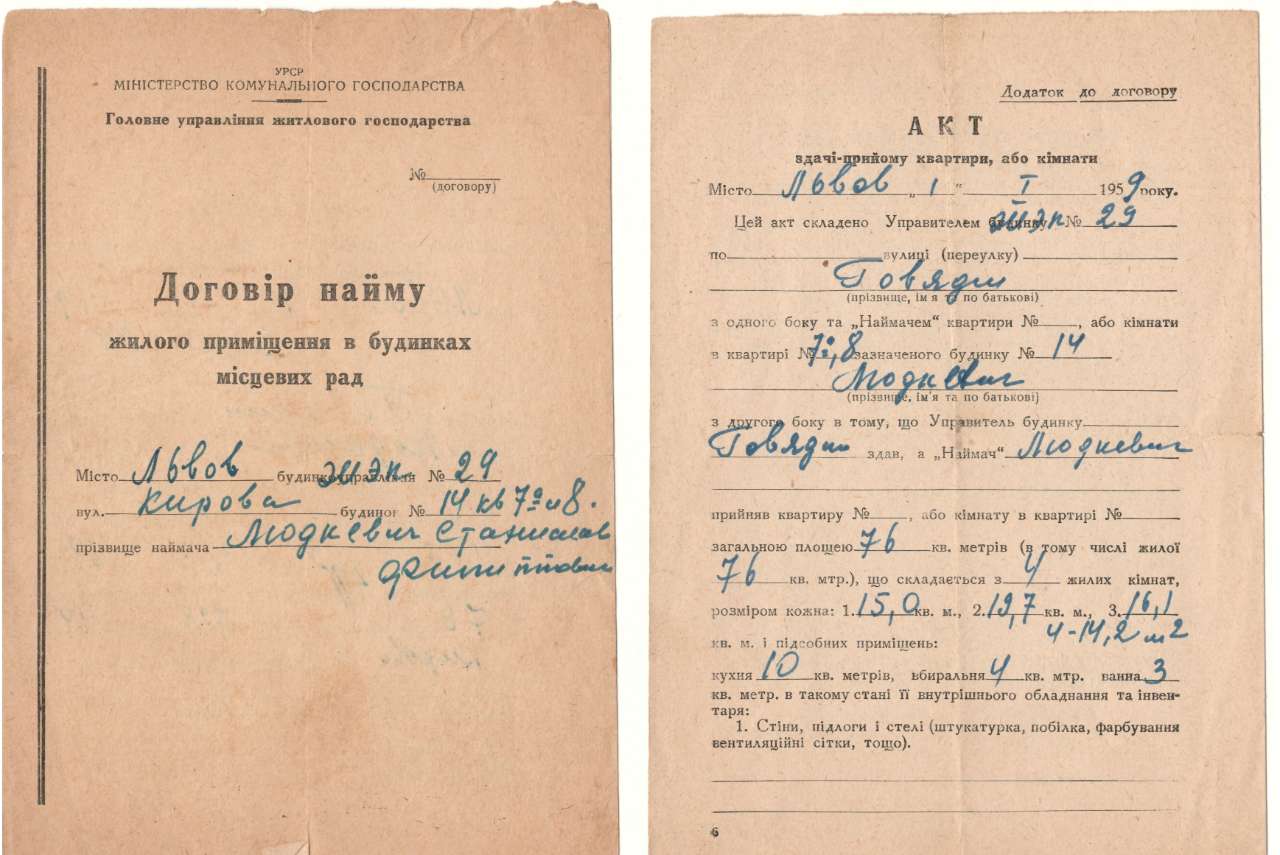 УРСР
МІНІСТЕРСТВО КОМУНАЛЬНОГО ГОСПОДАРСТВА
Головне управління житлового господарства
№
(договору)
Договір найму
жилого приміщення в будинках
місцевих рад
Місто Львов будинкоуправління жэк №29
вул. Кирова будинок № 14 кв 7а и 8.
прізвище наймача Людкевич Станислав
Филиппович
Додаток до договору
АКТ
здачі-прийому квартири, або кімнати
Місто Львов „1“ I 1959 року.
Цей акт складено Управителем будинку № 29
по вулиці (переулку)
(прізвище, ім'я та по батькові)
з одного боку та „Наймачем“ квартири №, або кімнати
в квартирі № 7а, 8 зазначеного будинку № 14
Людкевич
(прізвище, ім'я та по батькові)
з другого боку в тому, що Управитель будинку
здав, а „Наймач“ Людкевич
прийняв квартиру №, або кімнату в квартирі №
загальною площею 76 кв. метрів (в тому числі жилої
76 кв. мтр.), що складається з 4 жилих кімнат,
розміром кожна: 1. 15,0 кв. м., 2. 19,7 кв. м., 3. 16,1
4-14,2 м2
кв. м. і підсобних приміщень:
кухня 10 кв. метрів, вбиральня 4 кв. мтр. ванна 3
кв. метр. в такому стані її внутрішнього обладнання та інвен-
таря:
1. Стіни, підлоги і стелі (штукатурка, побілка, фарбування
вентиляційні сітки, тощо).
6